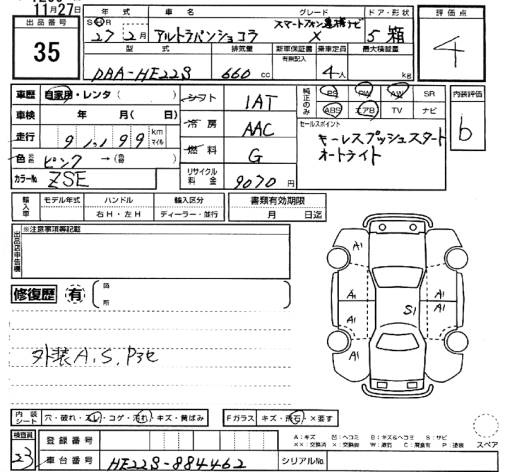 11月27日
出品番号
35
年式 車名 グレード ドア・形状
S H R 27年 2月 アルトラパンショコラ スマートフォン連携ナビ X 5 箱
型式 排気量 新車保証書 乗車定員 最大積載量
有無記入
DBA-HE22S 660 cc 4人 kg
評価点
4
車歴 自家用・レンタ( )
車検 年 月( 日)
走行 km マイル
色 元色 ピンク →(色 )
カラーNo. ZSE
シフト IAT
冷房 AAC
燃料 G
リサイクル料金 9070円
純正のみ PS PW AW SR
ABS エアB TV ナビ
セールスポイント
キーレスプッシュスタート
オートライト
内装評価
b
輸入車 モデル年式 ハンドル 輸入区分
右H・左H ディーラー・並行
書類有効期限
月 日迄
出品店申告欄 ※注意事項等記載
修復歴 有 箇所
外装A,S,P3セ
内装シート 穴・破れ・スレ・コゲ・汚れ・キズ・黄ばみ
Fガラス キズ・飛石・×要す
検査員
23
登録番号
車台番号 HE22S-884462
シリアルNo.
A1
A1 A1
S1
A1 A1
A:キズ U:ヘコミ B:キズ&ヘコミ S:サビ
××:交換済 ×:交換要 W:波冱 C:腐食有 P:塗装
スペア